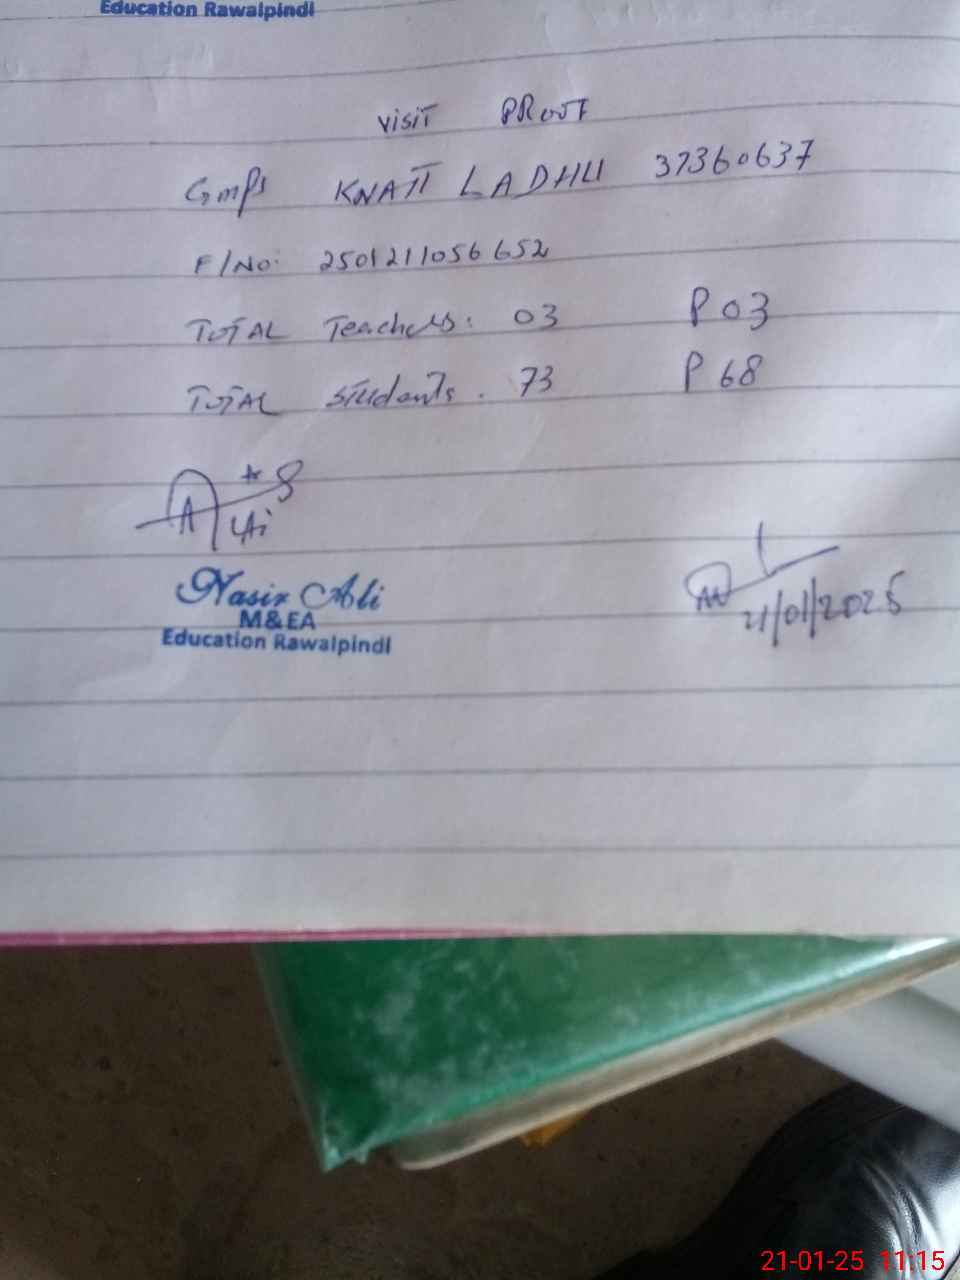 Education Rawalpindi
visit PRooF
Gmps KNATI LADHU 37360637
F/No: 2501211056652
TOTAL Teachers: 03 P 03
TOTAL students. 73 P 68
Nasir Ali
M&EA
Education Rawalpindi
21/01/2025
21-01-25 11:15